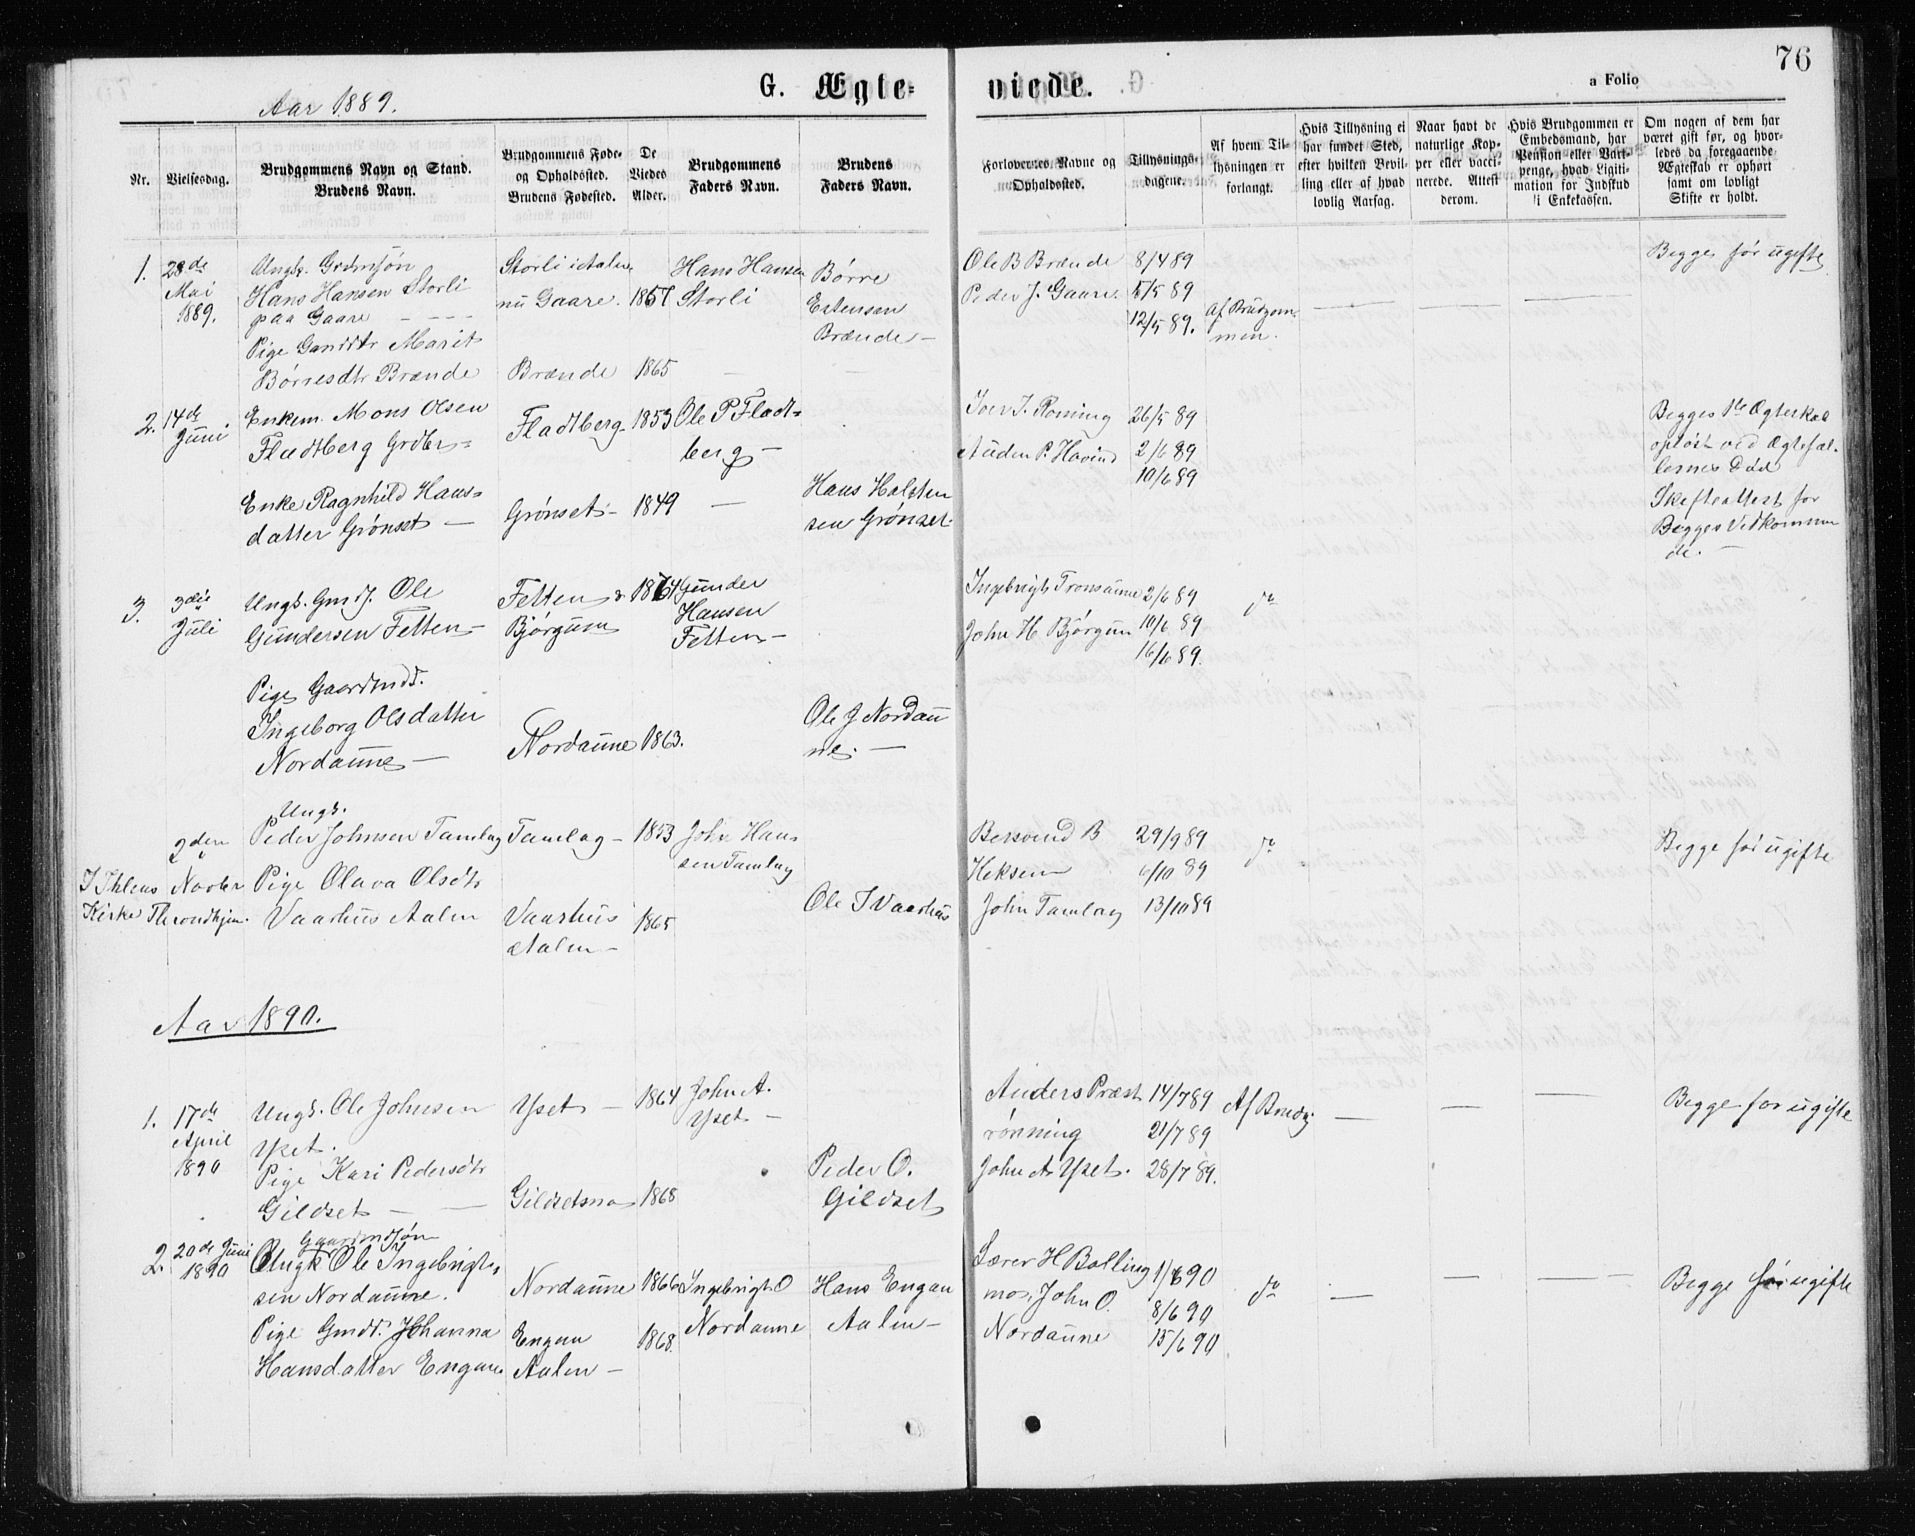 76
G. Ægte-
viede.
a Folio
Aar 1889.
Nr.
Vielsesdag.
Brudgommens Navn og Stand.
Brudens Navn.
Brudgommens Føde-
og Opholdssted.
Brudens Fødested.
De
Viedes
Alder.
Brudgommens
Faders Navn.
Brudens
Faders Navn.
Forlovernes Navne og
Opholdssted.
Tillysnings-
dagene.
Af hvem Til-
lysningen er
forlangt.
Hvis Tillysning ei
har fundet Sted,
efter hvilken Bevil-
ling eller af hvad
lovlig Aarsag.
Naar havt de
naturlige Kop-
per eller vacci-
nerede. Attest
derom.
Hvis Brudgommen er
Embedsmand, har
Pension eller Vart-
penge, hvad Ligiti-
mation for Indskud
i Enkekassen.
Om nogen af dem har
været gift før, og hvor-
ledes da foregaaende
Ægteskab er ophørt
samt om lovligt
Skifte er holdt.
1.
28de
Mai
1889.
Ungk.
Hans Hansen Storli
paa Gaare
Pige Marit
Børresdtr Brænde
Storli i Aalen
nu Gaare.
Brænde
1857
1865
Hans Hansen
Storli
Børre
Estensen
Brænde
Ole B Brænde
Peder J. Gaare
8/4 89
5/5 89
12/5 89.
Af Brudgom-
men.
Begge før ugifte
2.
14de
Juni
Enkem. Mons Olsen
Fladtberg Grdbr
Enke Ragnhild Hans-
datter Grønset
Fladtberg
Grønset
1853
1849
Ole P Fladt-
berg
Hans Halsten
sen Grønset
Roming
Auden P. Havind
26/5 89
2/6 89
10/6 89
Begges 1te Ægteskab
opløst ved Ægtefæl-
lernes Død
Skifteattest for
Begges Vedkommen
de.
3.
3die
Juli
Ungk. Gmdf. Ole
Gundersen Fetten
Pige Gaardmdt.
Ingeborg Olsdatter
Nordaune
Fetten &
Bjørgum
Nordaune
1864
1863.
Gunder
Hansen
Fetten
Ole J Nordau
ne.
Ingebrigt Tronsaune
John H Bjørgum
2/6 89
10/6 89
16/6 89.
do
I Ihlens
Kirke Throndhjem.
2den
Novbr
Ungk.
Peder Johnsen Tamlag
Pige Olava Olsdtr
Vaarhus Aalen
Tamlag
Vaarhus
Aalen
1853
1865
John Han
sen Tamlag
Ole I Vaarhus
Bersvend B
Heksem
John Tamlag
29/9 89
6/10 89
13/10 89
do
Begge før ugifte
Aar 1890.
1.
17de
April
1890
Ungk. Ole Johnsen
Yset.
Pige Kari Pedersdtr
Gildset
Yset
Gildsetmo
1864
1868
John A.
Yset
Peder O.
Gildset
Anders Præst
rønning
John A Yset.
14/7 89
21/7 89
28/7 89.
Af Brudg
Begge før ugifte
2.
20de Juni
1890
Gaardmdsøn
Ungk Ole Ingebrigt-
sen Nordaune.
Pige Gmdt. Johanna
Hansdatter Engan
Nordaune
Engan
Aalen
1866
1868.
Ingebrigt O
Nordaune
Hans Engan
Aalen
Lærer H Bolling
mo, John O.
Nordaune
1/6 90
8/6 90
15/6 90
do
Begge før ugifte